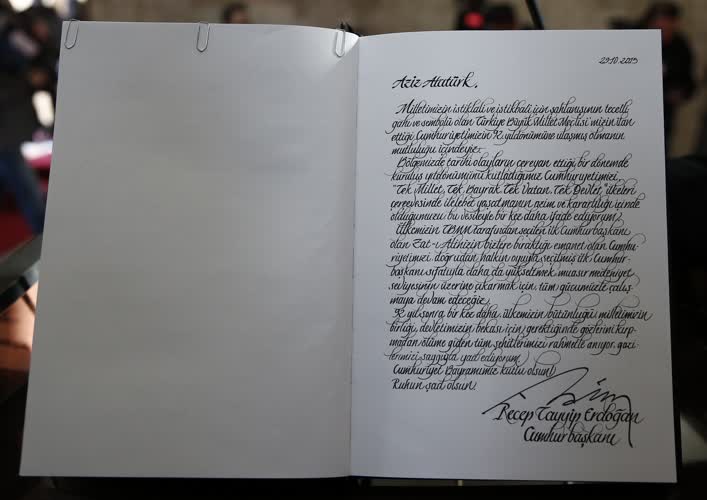 29.10.2015
Aziz Atatürk,
Milletimizin istiklali ve istikbali için şahlanışının tecelli
gahı ve sembolü olan Türkiye Büyük Millet Meclisi'mizin ilan
ettiği Cumhuriyetimizin 92. yıldönümüne ulaşmış olmanın
mutluluğu içindeyiz.
Bölgemizde tarihi olayların cereyan ettiği bir dönemde
kuruluş yıldönümünü kutladığımız Cumhuriyetimizi,
"Tek Millet, Tek Bayrak, Tek Vatan, Tek Devlet" ilkeleri
çerçevesinde ilelebet yaşatmanın azim ve kararlılığı içinde
olduğumuzu bu vesileyle bir kez daha ifade ediyorum.
Ülkemizin TBMM tarafından seçilen ilk Cumhurbaşkanı
olan Zat-ı Alinizin bizlere bıraktığı emanet olan Cumhu-
riyetimizi, doğrudan halkın oyuyla seçilmiş ilk Cumhur-
başkanı sıfatıyla daha da yükseltmek, muasır medeniyet
seviyesinin üzerine çıkarmak için, tüm gücümüzle çalış
maya devam edeceğiz.
92 yıl sonra bir kez daha, ülkemizin bütünlüğü, milletimizin
birliği, devletimizin bekası için, gerektiğinde gözlerini kırp-
madan ölüme giden tüm şehitlerimizi rahmetle anıyor, gazi-
lerimizi saygıyla yad ediyorum.
Cumhuriyet Bayramımız kutlu olsun!
Ruhun şad olsun!
Recep Tayyip Erdoğan
Cumhurbaşkanı